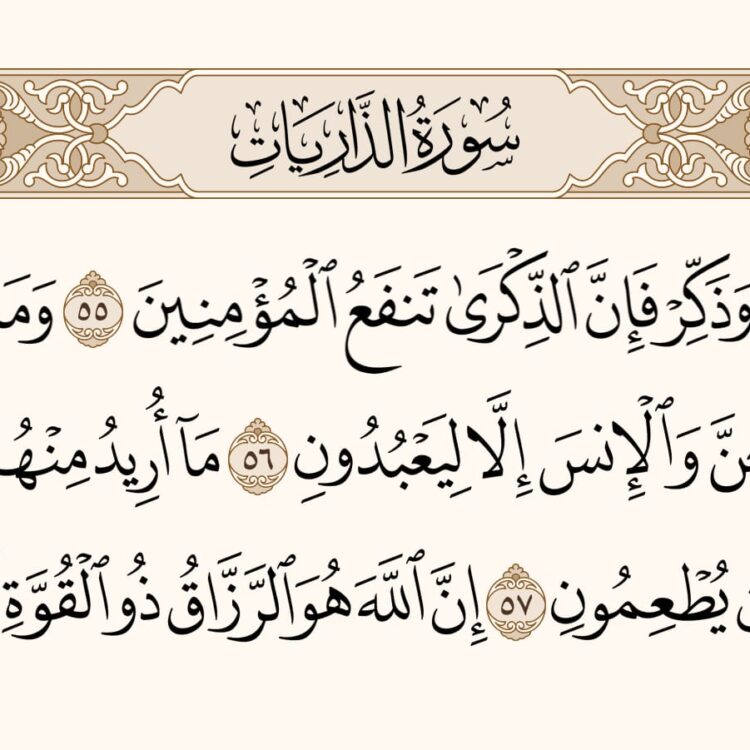 سُورَةُ الذَّارِيَاتِ
وَذَكِّرْ فَإِنَّ ٱلذِّكْرَىٰ تَنفَعُ ٱلْمُؤْمِنِينَ ٥٥ وَمَا
وَٱلْإِنسَ إِلَّا لِيَعْبُدُونِ ٥٦ مَآ أُرِيدُ
يُطْعِمُونِ ٥٧ إِنَّ ٱللَّهَ هُوَ ٱلرَّزَّاقُ ذُو ٱلْقُوَّةِ